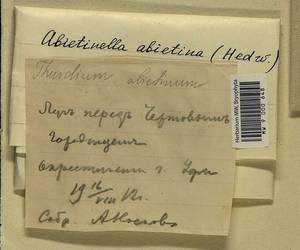 Abietinella abietina (Hedw.)
Thuidium abietinum
Лугъ передъ Чертовымъ
Городищемъ
окрестности г. Уфы
19 12/VIII 12 г.
Собр. А. Носковъ
Herbarium MW, Bryophyta